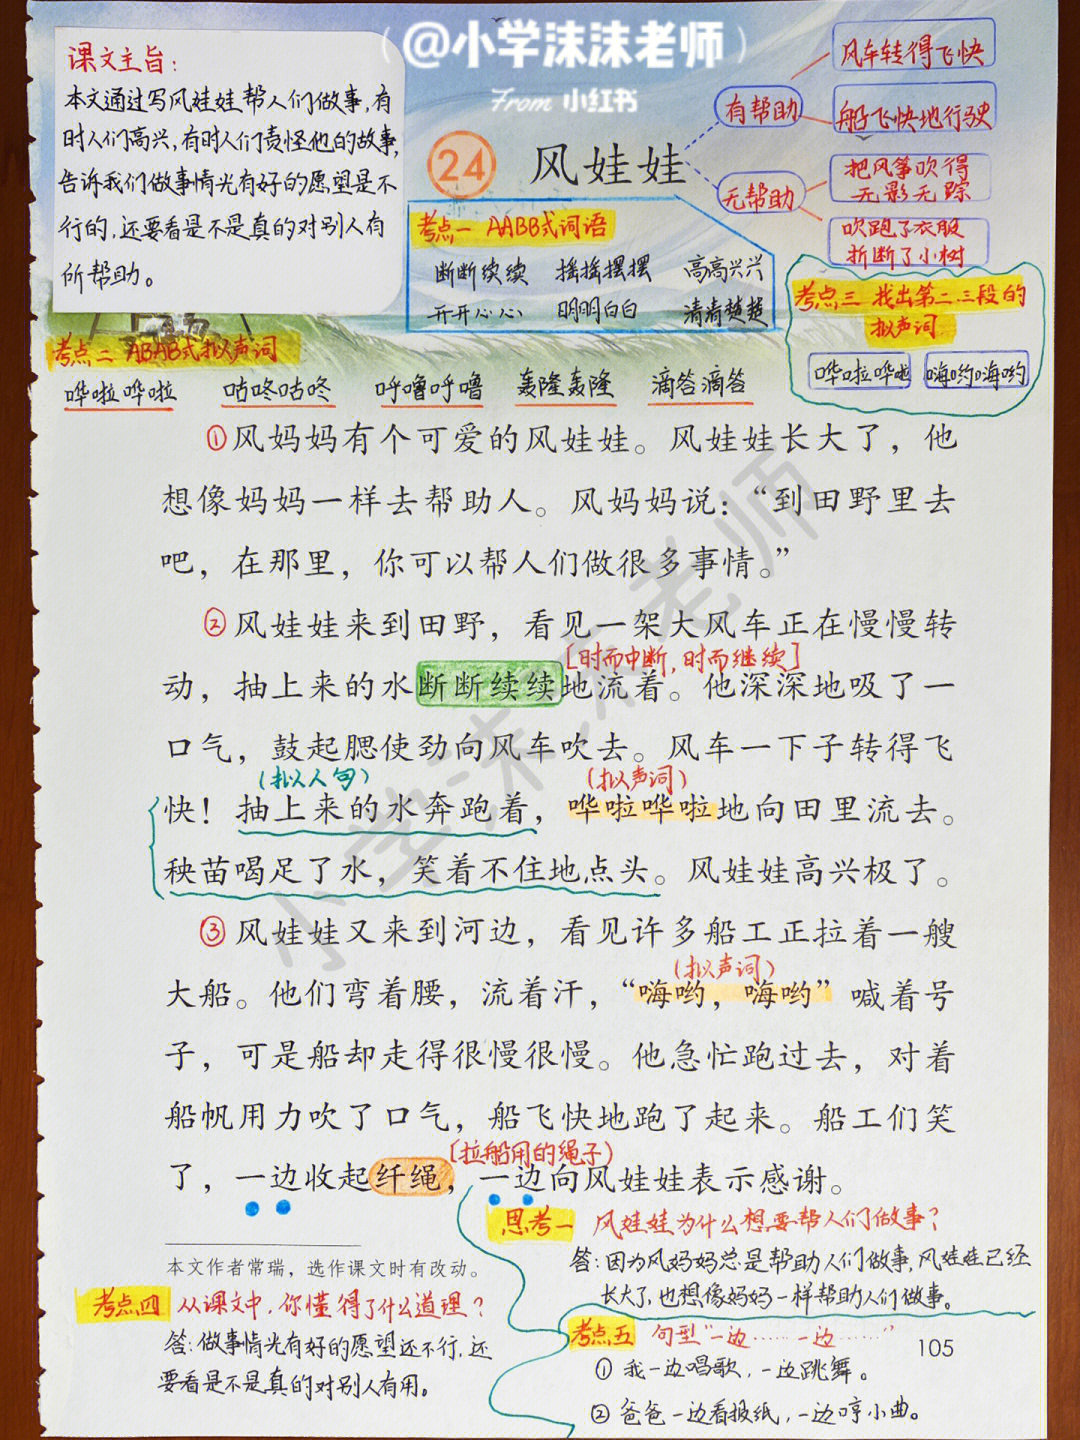 (@小学沫沫老师)
From 小红书
课文主旨:
本文通过写风娃娃帮人们做事,有
时人们高兴,有时人们责怪他的故事,
告诉我们做事情光有好的愿望是不
行的,还要看是不是真的对别人有
所帮助。
24 风娃娃
有帮助
风车转得飞快
船飞快地行驶
无帮助
把风筝吹得
无影无踪
吹跑了衣服
折断了小树
考点一 AABB式词语
断断续续 摇摇摆摆 高高兴兴
开开心心 明明白白 清清楚楚
考点三 找出第二、三段的
拟声词
哗啦哗啦 嗨哟嗨哟
考点二 ABAB式拟声词
哗啦哗啦 咕咚咕咚 呼噜呼噜 轰隆轰隆 滴答滴答
①风妈妈有个可爱的风娃娃。风娃娃长大了，他
想像妈妈一样去帮助人。风妈妈说：“到田野里去
吧，在那里，你可以帮人们做很多事情。”
②风娃娃来到田野，看见一架大风车正在慢慢转
[时而中断,时而继续]
动，抽上来的水断断续续地流着。他深深地吸了一
口气，鼓起腮使劲向风车吹去。风车一下子转得飞
(拟人句) (拟声词)
快！抽上来的水奔跑着，哗啦哗啦地向田里流去。
秧苗喝足了水，笑着不住地点头。风娃娃高兴极了。
③风娃娃又来到河边，看见许多船工正拉着一艘
(拟声词)
大船。他们弯着腰，流着汗，“嗨哟，嗨哟”喊着号
子，可是船却走得很慢很慢。他急忙跑过去，对着
船帆用力吹了口气，船飞快地跑了起来。船工们笑
[拉船用的绳子)
了，一边收起纤绳，一边向风娃娃表示感谢。
思考一 风娃娃为什么想要帮人们做事?
答:因为风妈妈总是帮助人们做事,风娃娃已经
长大了,也想像妈妈一样帮助人们做事。
本文作者常瑞，选作课文时有改动。
考点四 从课文中,你懂得了什么道理?
答:做事情光有好的愿望还不行,还
要看是不是真的对别人有用。
考点五 句型“一边……一边……”
① 我一边唱歌,一边跳舞。
② 爸爸一边看报纸,一边哼小曲。
105
小学沫沫老师